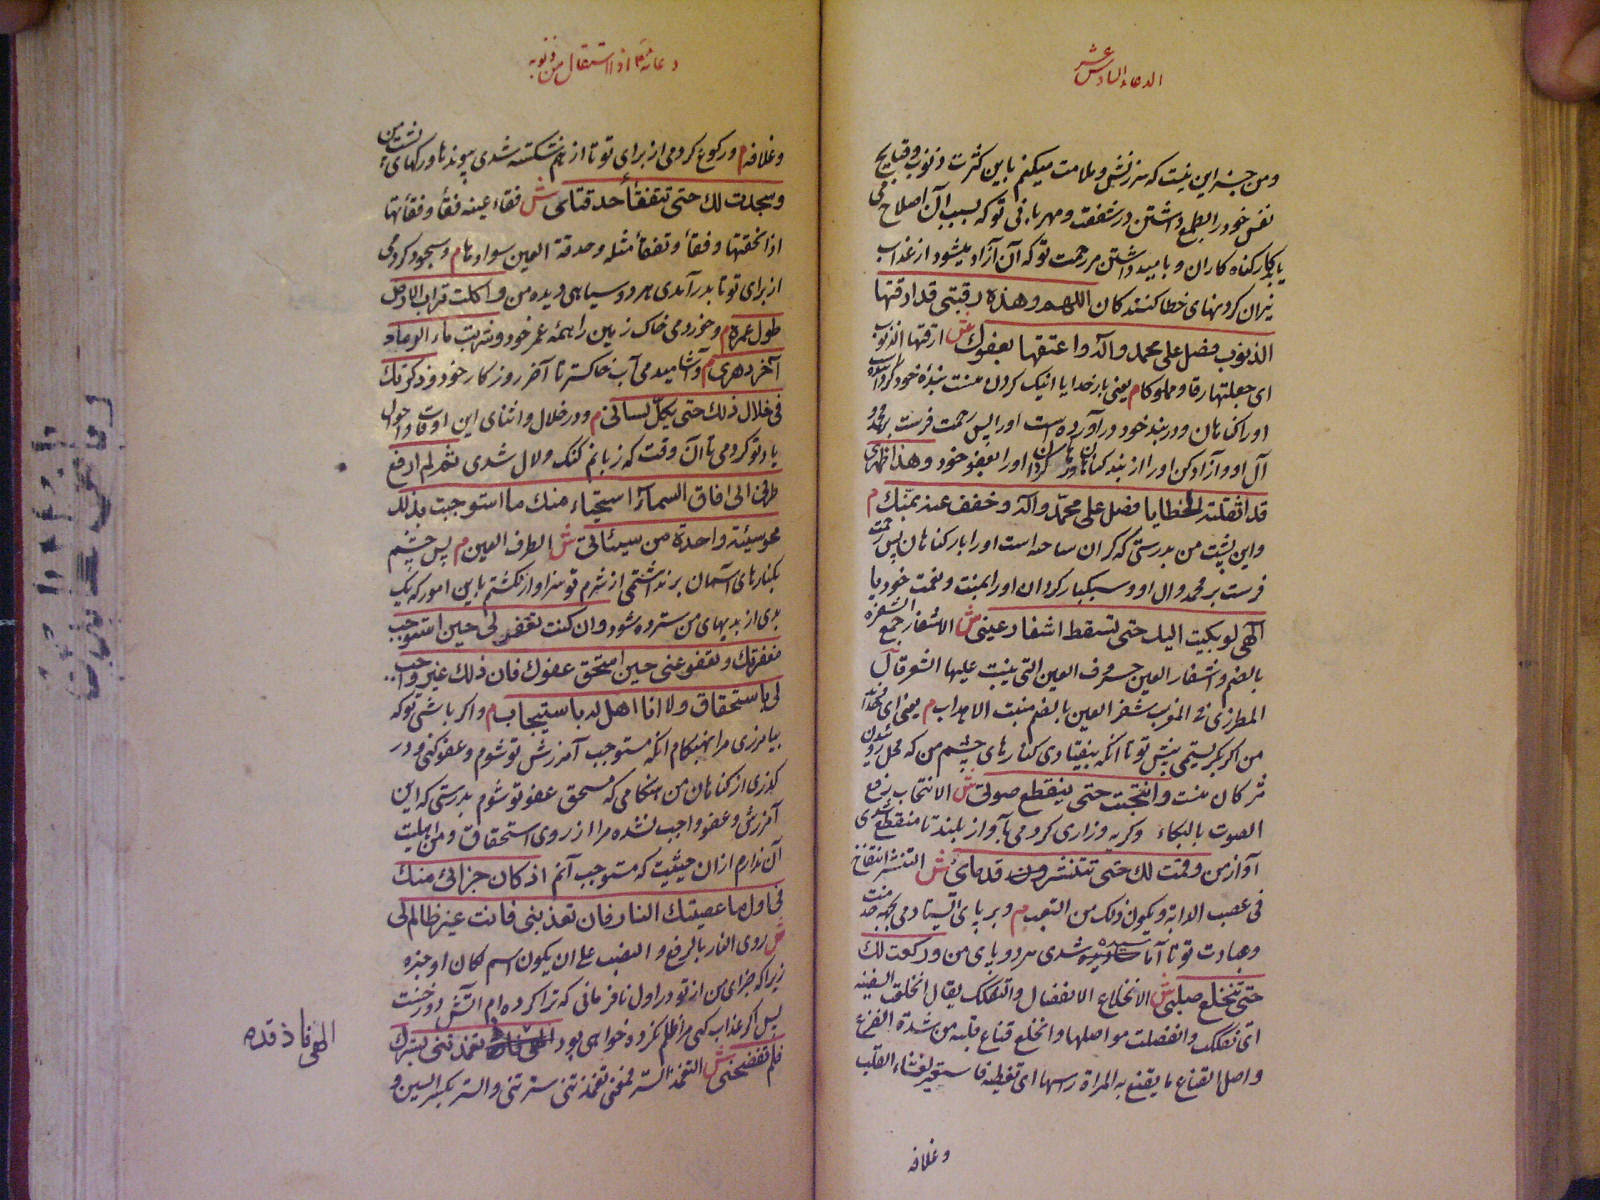 الدعاء السادس عشر
و من جز این نیست که سرزنش و ملامت میکنم باین کثرت ذنوب و قبایح
نفس خود را بطمع داشتن در شفقت و مهربانی تو که بسبب آن اصلاح می
یابد کار گناه کاران و بامید داشتن مر رحمت تو که آن آزاد میشود از عذاب
نیران گردنهای خطا کنندکان اللهم و هذه رقبتی قد ارقتها
الذنوب فصل علی محمد و آله و اعتقها بعفوك ش ارقتها الذنوب
ای جعلتها رقا و مملوکا م یعنی بار خدایا اینک کردن منست بنده خود کردانیده
او را کناهان و در بند خود در آورده است او را پس رحمت فرست بر محمد و
آل او و آزاد کن او را از بند کناهان و کردان او را بعفو خود و هذا ظهری
قد اثقلته الخطایا فصل علی محمد و آله و خفف عنه بمنك م
و این پشت من بدرستی که کران ساخته است او را بار کناهان پس رحمت
فرست بر محمد و ال او و سبکبار کردان او را بمنت و نعمت خود یا
الهی لو بکیت الیك حتی تسقط اشفار عینی ش الاشفار جمع الشفره
بالضم و اشفار العین حروف العین التی ینبت علیها الشعر قال
المطرزی فی المغرب شفر العین بالضم منبت الاهداب م یعنی ای خداوند
من اکر بکریستمی پیش تو تا آنکه بیفتادی کنارهای چشم من که محل روئیدن
مژکان منست و انتحبت حتی ینقطع صوتی ش الانتحاب رفع
الصوت بالبکاء و کریه و زاری کردمی بآواز بلند تا منقطع شدی
آواز من و قمت لك حتی تتنشر قدمای ش التنشر انتفاخ
فی عصب الدابة و یکون ذلک من التعب م و بر پای ایستادمی بجهة خدمت
و عبادت تو تا آماسیده شدی هر دو پای من و رکعت لك
حتی ینخلع صلبی ش الانخلاع الانفصال و التفکک یقال انخلعت السفینه
ای تفککت و انفصلت مواصلها و انخلع قناع قلبه من شدة الفزع
و اصل القناع ما یقنع به المراة رسها ای تغطیه فاستعیر لغشاء القلب
و غلافه
دعائه اذا استقال من ذنوبه
و غلافه م و رکوع کردمی از برای تو تا از هم شکسته شدی پیوندها و رکهای پشت من
و سجدت لك حتی تتفقأ حدقتای ش فقاء عینه فقأ و فقأتها
اذا بخقتها و فقأ و تفقأ مثله و حدقة العین سوادها م و سجود کردمی
از برای تو تا بدر آمدی هر دو سیاهی دیده من و اکلت تراب الارض
طول عمری م و خوردمی خاک زمین را همه عمر خود و شربت ماء الرماد
آخر دهری م و آشامیدمی آب خاکستر تا آخر روزکار خود و ذکرتك
فی خلال ذلك حتی یکل لسانی م و در خلال و اثنای این اوقات و احوال
یاد تو کردمی تا آن وقت که زبانم کنک و لال شدی ثم لم ارفع
طرفی الی افاق السماء استحیاء منك ما استوجبت بذلك
محو سیئة واحدة من سیئاتی ش الطرف العین م پس چشم
بکنارهای آسمان برنداشتمی از شرم تو سزاوار نکشتم باین امور که یک
بدی از بدیهای من سترده شود و ان کنت تغفر لی حین استوجب
مغفرتك و تعفو عنی حین استحق عفوك فان ذلك غیر واجب
لی باستحقاق و لا انا اهل له باستیجاب م و اکر باشی تو که
بیامرزی مرا بهنکام آنکه مستوجب آمرزش تو شوم و عفو کنی و در
کذری از کناهان من هنکامی که مستحق عفو تو شوم بدرستی که این
آمرزش و عفو واجب نشده مرا از روی استحقاق و من اهلیت
آن ندارم از ان حیثیت که مستوجب آنم اذ کان جزائی منك
فی اول ما عصیتك النار فان تعذبنی فانت غیر ظالم لی
ش روی النار بالرفع و النصب علی ان یکون اسم کان او خبره
زیرا که جزای من از تو در اول نافرمانی که ترا کرده ام آتش دوزخست
پس اکر عذاب کنی مرا ظلم نکرده خواهی بود تغمدتنی بسترك
فلم تفضحنی ش التغمد الستر فمعنی تغمدتنی سترتنی و الستر بکسر السین و
الهی فاذ قد